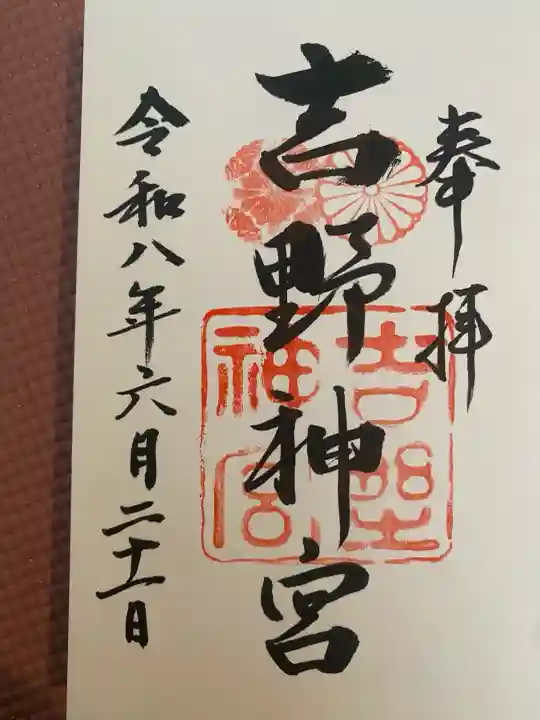 奉拝
吉野神宮
吉野
神宮
令和八年六月二十一日